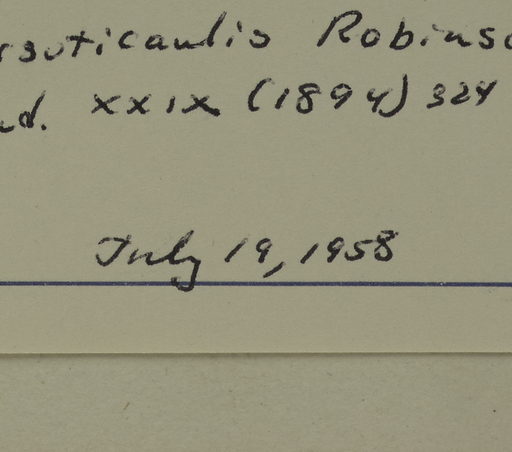 rsuticaulis Robinso
ad. XXIX (1894) 324
July 19, 1958